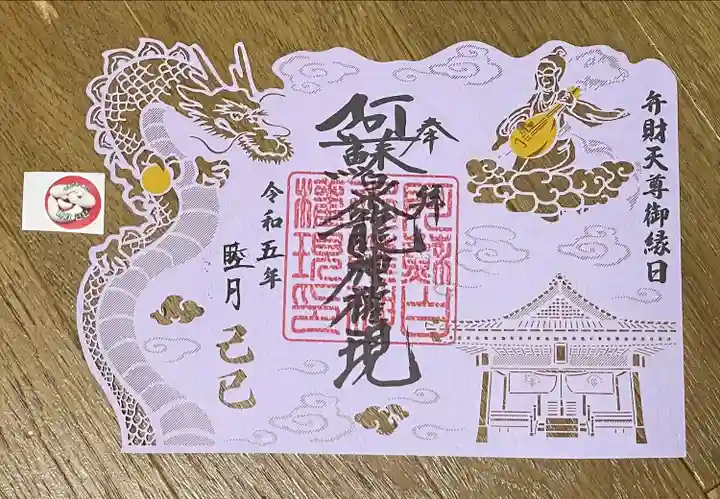 弁財天尊御縁日
奉拝
阿蘇白龍神権現
令和五年
睦月
己巳